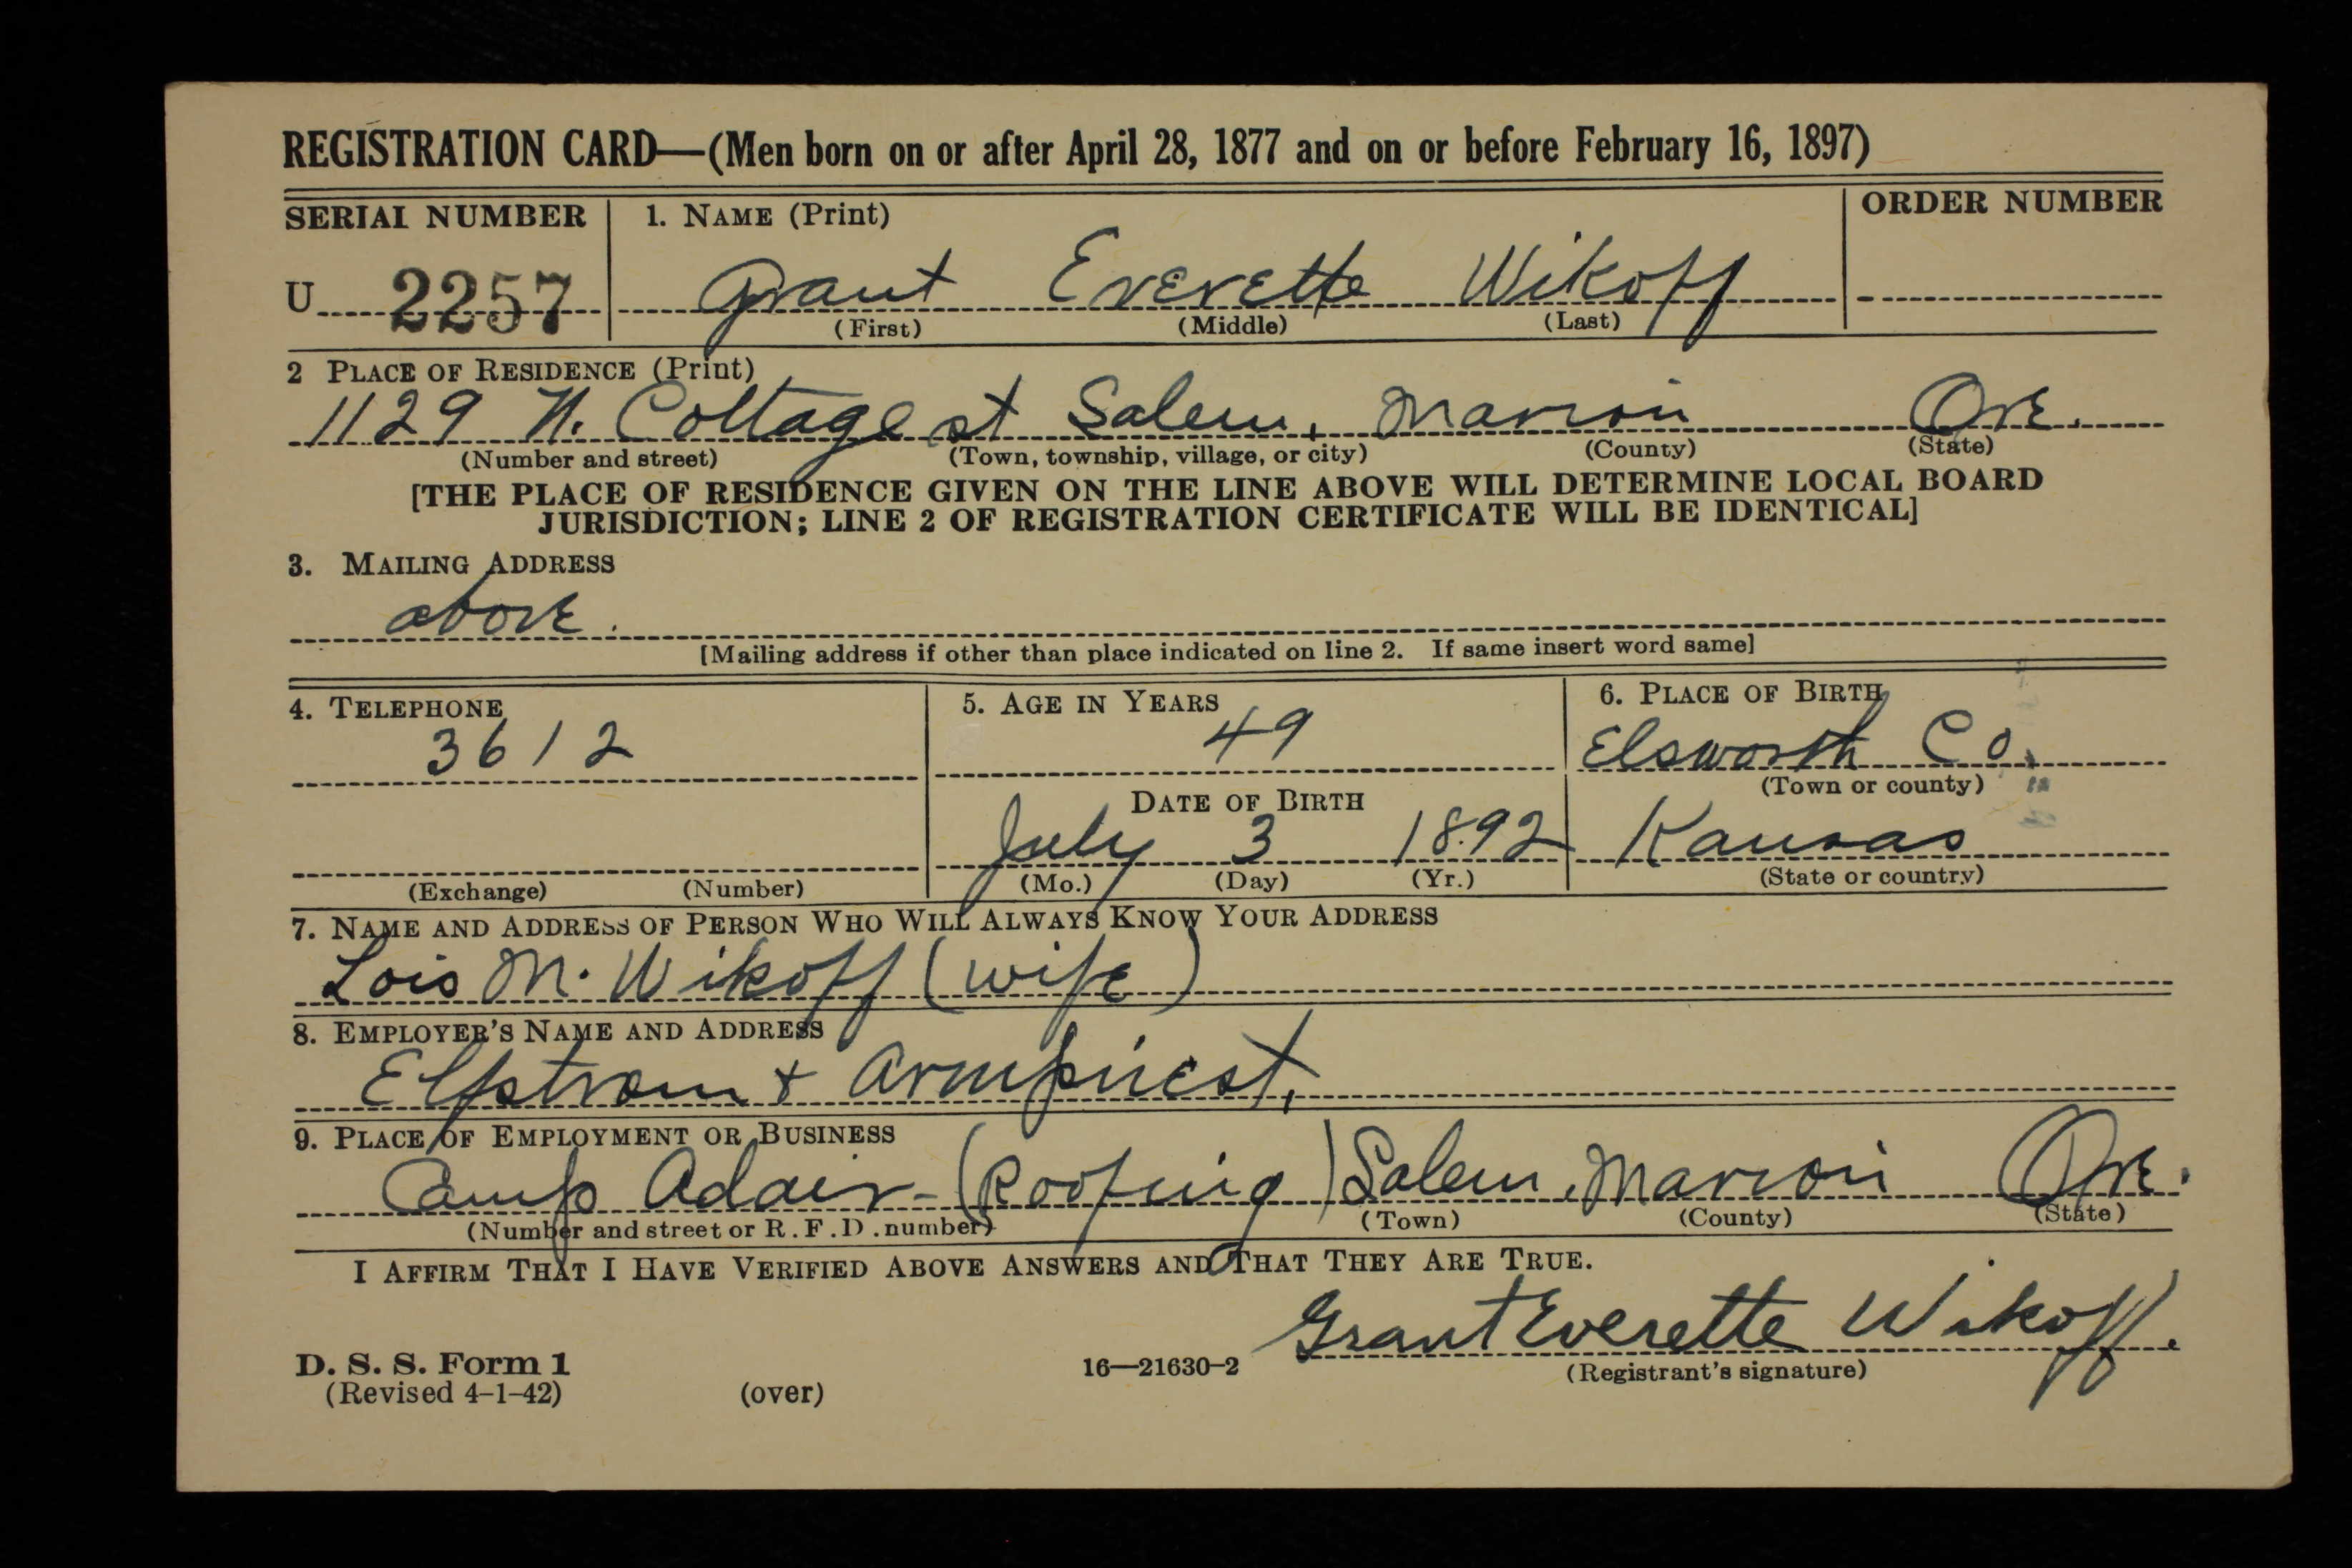 REGISTRATION CARD—(Men born on or after April 28, 1877 and on or before February 16, 1897)
SERIAL NUMBER 1. NAME (Print) ORDER NUMBER
U 2257 Grant Everette Wikoff
(First) (Middle) (Last)
2 PLACE OF RESIDENCE (Print)
1129 N. Cottage st Salem, Marion Ore.
(Number and street) (Town, township, village, or city) (County) (State)
[THE PLACE OF RESIDENCE GIVEN ON THE LINE ABOVE WILL DETERMINE LOCAL BOARD
JURISDICTION; LINE 2 OF REGISTRATION CERTIFICATE WILL BE IDENTICAL]
3. MAILING ADDRESS
above.
[Mailing address if other than place indicated on line 2. If same insert word same]
4. TELEPHONE 5. AGE IN YEARS 6. PLACE OF BIRTH
3612 49 Elsworth Co.
(Town or county)
DATE OF BIRTH
July 3 1892 Kansas
(Exchange) (Number) (Mo.) (Day) (Yr.) (State or country)
7. NAME AND ADDRESS OF PERSON WHO WILL ALWAYS KNOW YOUR ADDRESS
Lois M. Wikoff (wife)
8. EMPLOYER'S NAME AND ADDRESS
Elfstrom + Armpriest,
9. PLACE OF EMPLOYMENT OR BUSINESS
Camp Adair - (Roofing) Salem, Marion Ore.
(Number and street or R.F.D. number) (Town) (County) (State)
I AFFIRM THAT I HAVE VERIFIED ABOVE ANSWERS AND THAT THEY ARE TRUE.
Grant Everette Wikoff.
D. S. S. Form 1 16—21630-2 (Registrant's signature)
(Revised 4-1-42) (over)